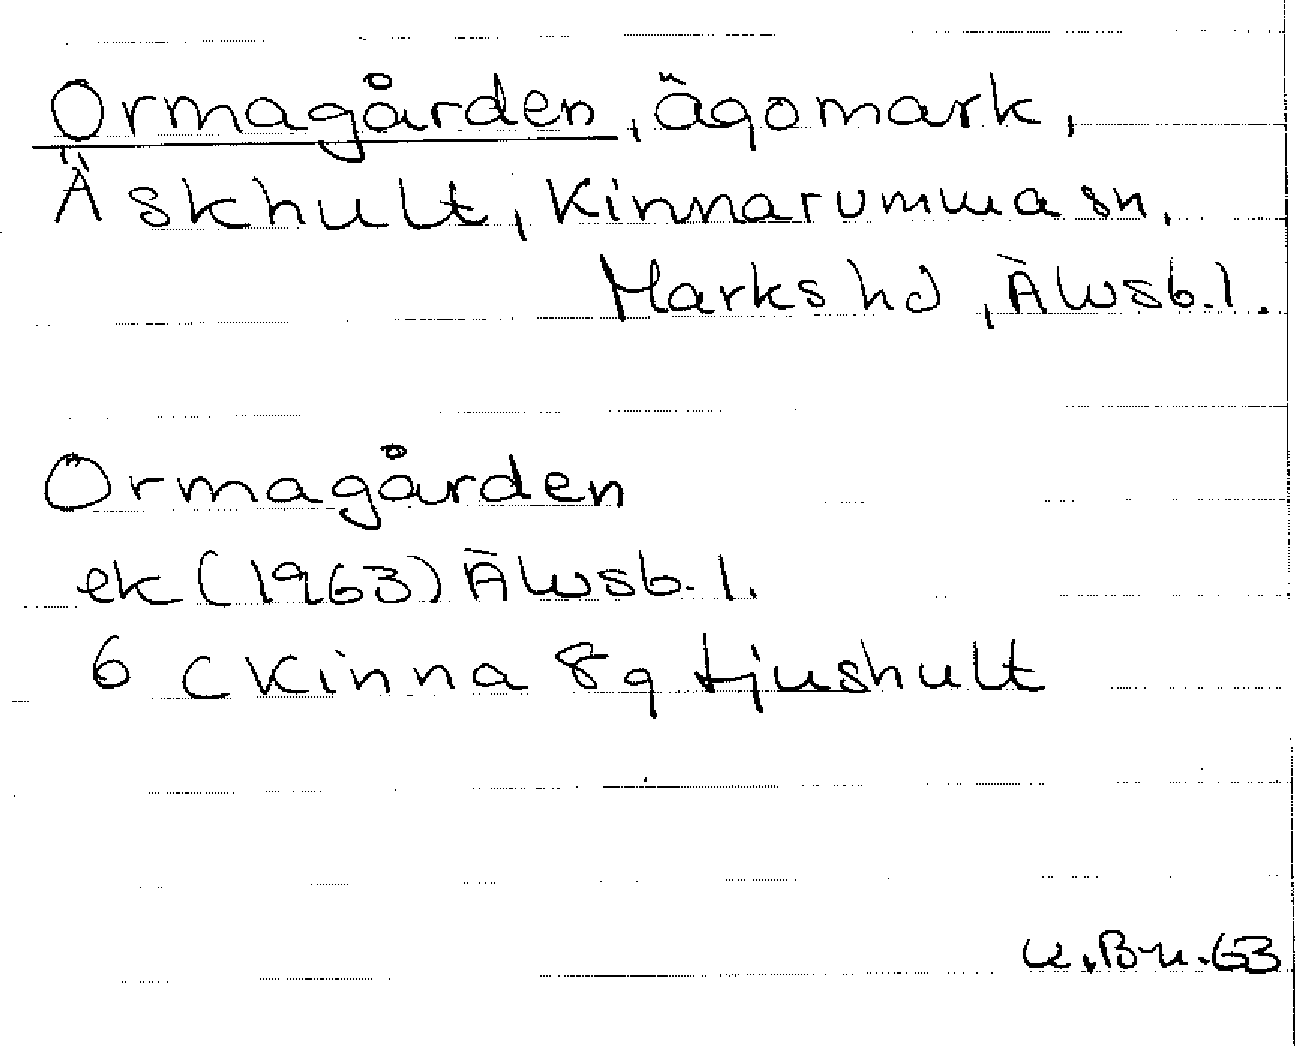 Ormagården, ägomark,
Äskhult, Kinnarumma sn,
Marks hd, Älvsb. l.
Ormagården
ek (1963) Älvsb. l.
6 C Kinna 8q tjushult
u.Bn.63